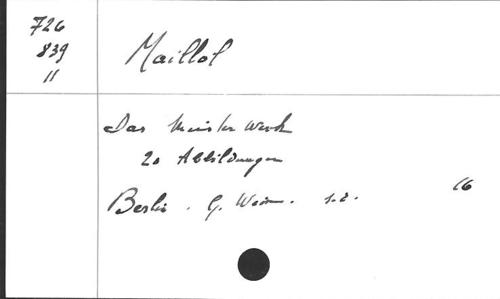 726
839
11
Maillol
Das Meister Werk
20 Abbildungen
Berlin . G. Weise . s.d. 16